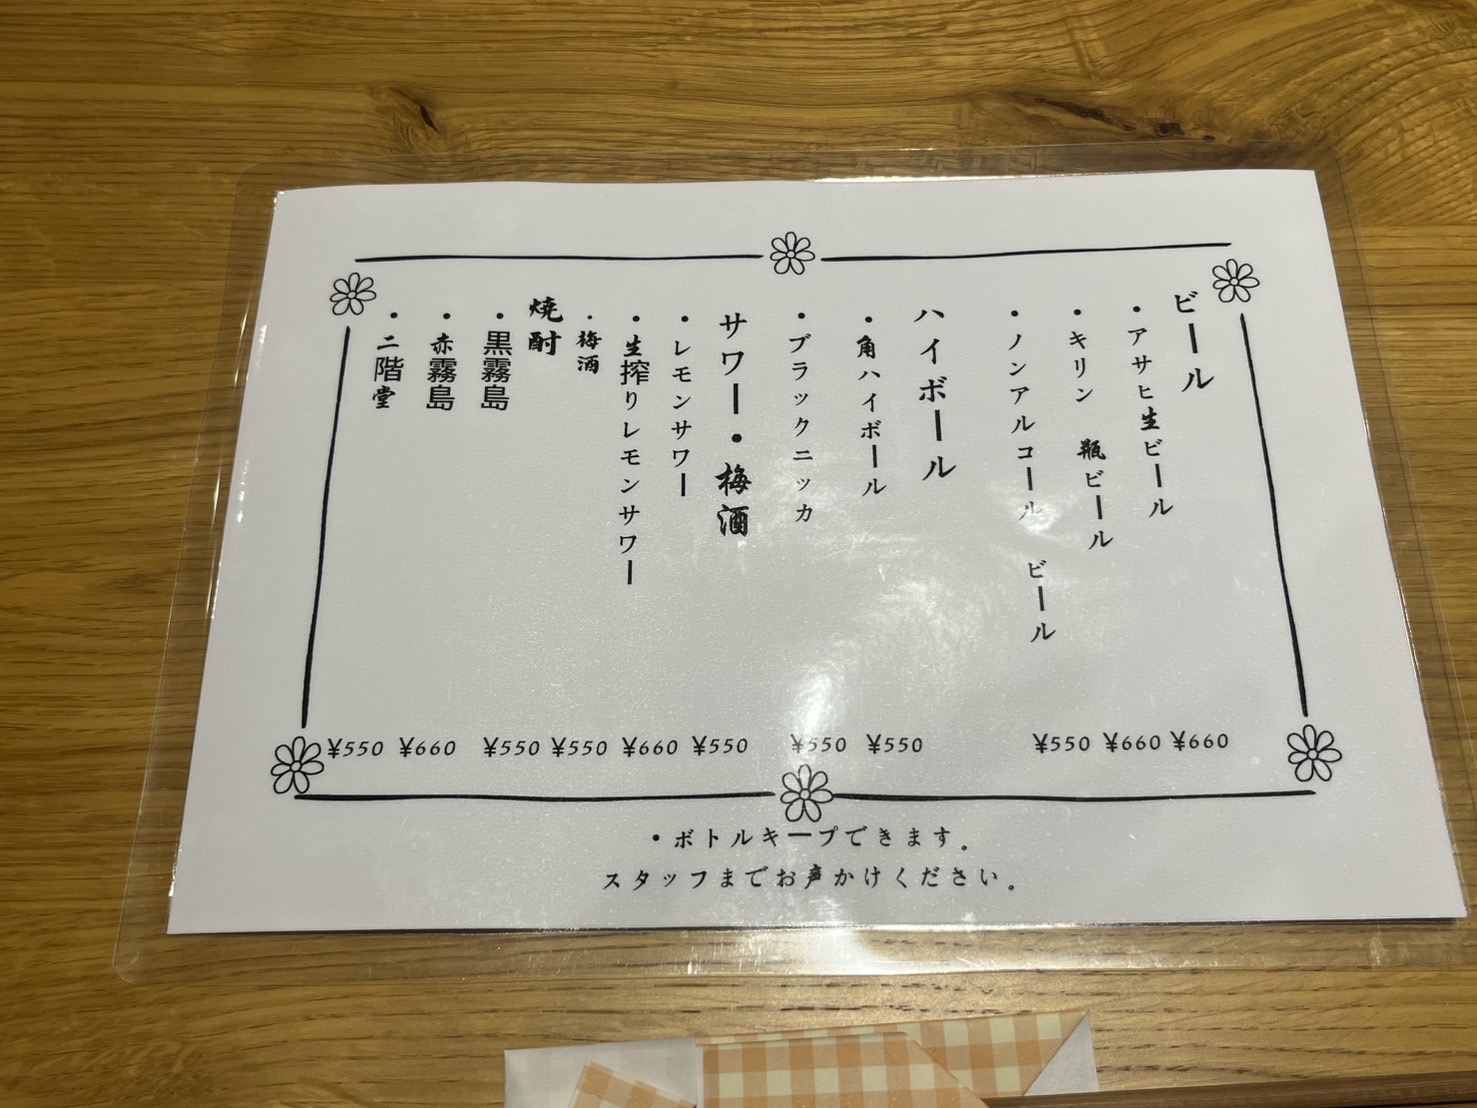 ビール
・アサヒ生ビール
・キリン 瓶ビール
・ノンアルコール ビール
ハイボール
・角ハイボール
・ブラックニッカ
サワー・梅酒
・レモンサワー
・生搾りレモンサワー
・梅酒
焼酎
・黒霧島
・赤霧島
・二階堂
¥550 ¥660 ¥550 ¥550 ¥660 ¥550 ¥550 ¥550 ¥550 ¥660 ¥660
・ボトルキープできます。
スタッフまでお声かけください。